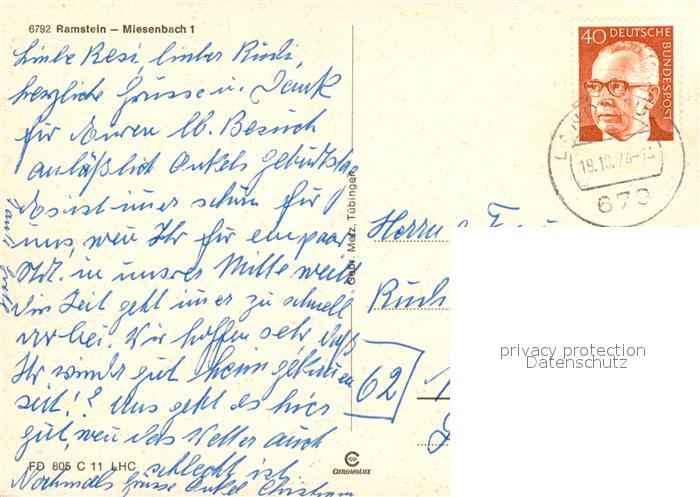 6792 Ramstein — Miesenbach 1
Liebe Resi, lieber Rudi,
herzliche Grüsse u. Dank
für Euren lb. Besuch
anläßlich Onkels Geburtstag
Es ist imer schön für
uns, wen Ihr für ein paar
Std. in unsrer Mitte weilt
Die Zeit geht imer zu schnell
vorbei. Wir hoffen sehr, daß
Ihr wieder gut heim gekomen
seit! Uns geht es hier
gut, wen das Wetter auch
schlecht ist.
Nochmals Grüsse Onkel
Tante
Gebr. Metz, Tübingen
FD 805 C 11 LHC
CHROMOLUX
40 DEUTSCHE BUNDESPOST
19.10.74-14
679
Herrn u. Frau
Rudi
62
privacy protection
Datenschutz